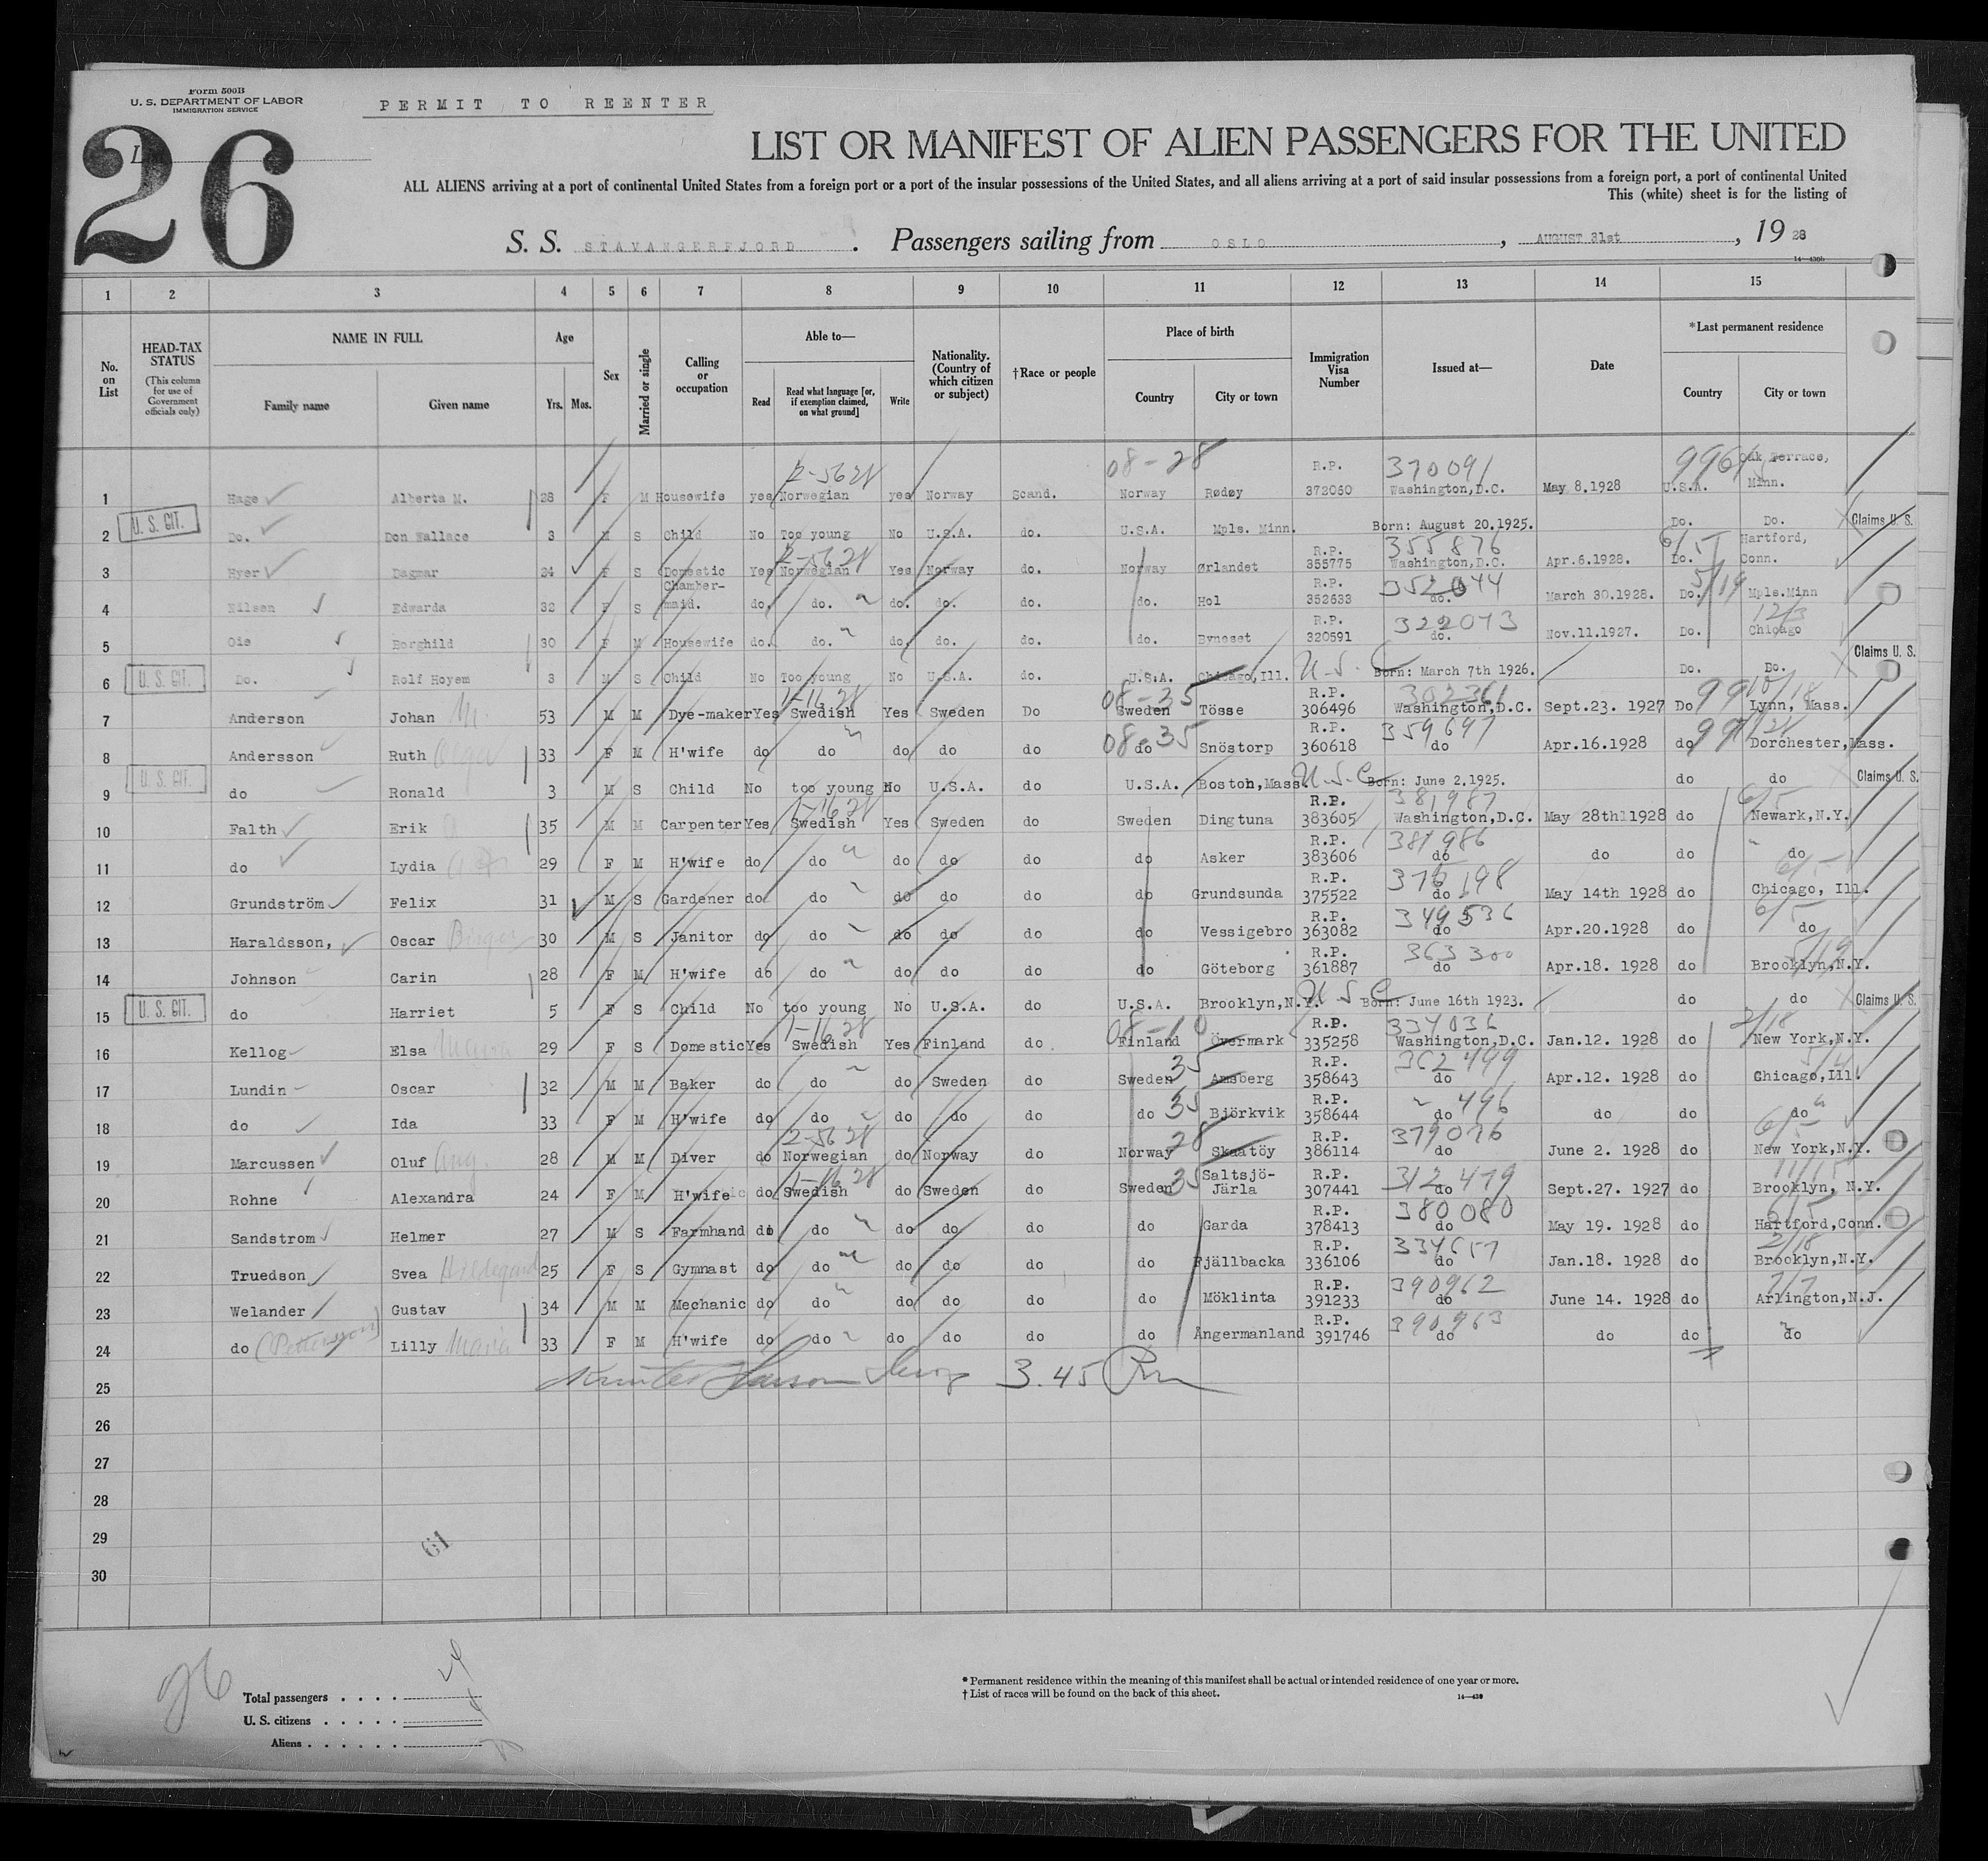 Form 500B
U. S. DEPARTMENT OF LABOR
IMMIGRATION SERVICE
PERMIT TO REENTER
26
LIST OR MANIFEST OF ALIEN PASSENGERS FOR THE UNITED
ALL ALIENS arriving at a port of continental United States from a foreign port or a port of the insular possessions of the United States, and all aliens arriving at a port of said insular possessions from a foreign port, a port of continental United
This (white) sheet is for the listing of
S. S. STAVANGERFJORD . Passengers sailing from OSLO , AUGUST 31st , 19 28
14—430b
1 2 3 4 5 6 7 8 9 10 11 12 13 14 15
No. on List
HEAD-TAX STATUS (This column for use of Government officials only)
NAME IN FULL Family name Given name
Age Yrs. Mos.
Sex
Married or single
Calling or occupation
Able to— Read Read what language [or, if exemption claimed, on what ground] Write
Nationality. (Country of which citizen or subject)
†Race or people
Place of birth Country City or town
Immigration Visa Number
Issued at—
Date
*Last permanent residence Country City or town
2-5628 08-28 R.P. 370091 996/ Oak Terrace,
1 Hage Alberta M. 28 F M Housewife yes Norwegian yes Norway Scand. Norway Rødøy 372060 Washington,D.C. May 8.1928 U.S.A. Minn.
2 U. S. CIT. Do. Don Wallace 3 M S Child No Too young No U.S.A. do. U.S.A. Mpls. Minn. Born: August 20.1925. Do. Do. Claims U. S.
2-5628 R.P. 355876 6/5 Hartford,
3 Hyer Dagmar 24 F S Domestic Yes Norwegian Yes Norway do. Norway Ørlandet 355775 Washington,D.C. Apr.6.1928. Do. Conn.
Chamber- R.P. 352044 5/19
4 Nilsen Edwarda 32 F S maid. do. do. do. do. do. do. Hol 352633 do. March 30.1928. Do. Mpls.Minn
R.P. 322073 12/3
5 Oie Borghild 30 F M Housewife do. do. do. do. do. do. Byneset 320591 do. Nov.11.1927. Do. Chicago
6 U. S. CIT. Do. Rolf Hoyem 3 M S Child No Too young No U.S.A. do. U.S.A. Chicago,Ill. U.S.C Born: March 7th 1926. Do. Do. Claims U. S.
1-1628 08-35 R.P. 302361 99 10/18
7 Anderson Johan M. 53 M M Dye-maker Yes Swedish Yes Sweden Do Sweden Tösse 306496 Washington,D.C. Sept.23. 1927 Do Lynn, Mass.
08-35 R.P. 359647 99
8 Andersson Ruth Olga 33 F M H'wife do do do do do do Snöstorp 360618 do Apr.16.1928 do Dorchester,Mass.
9 U. S. CIT. do Ronald 3 M S Child No too young No U.S.A. do U.S.A. Boston,Mass. U.S.C Born: June 2,1925. do do Claims U. S.
1-1628 R.P. 381987 6/5
10 Falth Erik 35 M M Carpenter Yes Swedish Yes Sweden do Sweden Dingtuna 383605 Washington,D.C. May 28th 1928 do Newark,N.Y.
R.P. 381986
11 do Lydia 29 F M H'wife do do do do do do Asker 383606 do do do do
R.P. 376198 6/5
12 Grundström Felix 31 M S Gardener do do do do do do Grundsunda 375522 do May 14th 1928 do Chicago, Ill.
R.P. 349536 6/5
13 Haraldsson, Oscar Birger 30 M S Janitor do do do do do do Vessigebro 363082 do Apr.20.1928 do do
R.P. 363300 5/19
14 Johnson Carin 28 F M H'wife do do do do do do Göteborg 361887 do Apr.18. 1928 do Brooklyn,N.Y.
15 U. S. CIT. do Harriet 5 F S Child No too young No U.S.A. do U.S.A. Brooklyn,N.Y. U S C Born: June 16th 1923. do do Claims U. S.
1-1628 08-10 R.P. 334036 2/18
16 Kellog Elsa Maria 29 F S Domestic Yes Swedish Yes Finland do Finland Övermark 335258 Washington,D.C. Jan.12. 1928 do New York,N.Y.
35 R.P. 362499
17 Lundin Oscar 32 M M Baker do do do Sweden do Sweden Amsberg 358643 do Apr.12. 1928 do Chicago,Ill.
35 R.P. 496
18 do Ida 33 F M H'wife do do do do do do Björkvik 358644 do do do do
2-5628 28 R.P. 379076 6/5
19 Marcussen Oluf Aug. 28 M M Diver do Norwegian do Norway do Norway Skaatöy 386114 do June 2. 1928 do New York,N.Y.
1-1628 35 Saltsjö- R.P. 312479 11/15
20 Rohne Alexandra 24 F M H'wife do Swedish do Sweden do Sweden Järla 307441 do Sept.27. 1927 do Brooklyn, N.Y.
R.P. 380080 6/5
21 Sandstrom Helmer 27 M S Farmhand do do do do do do Garda 378413 do May 19. 1928 do Hartford,Conn.
R.P. 334657 2/18
22 Truedson Svea Hildegard 25 F S Gymnast do do do do do do Fjällbacka 336106 do Jan.18. 1928 do Brooklyn,N.Y.
R.P. 390962 7/7
23 Welander Gustav 34 M M Mechanic do do do do do do Möklinta 391233 do June 14. 1928 do Arlington,N.J.
R.P. 390963
24 do (Petterson) Lilly Maria 33 F M H'wife do do do do do do Angermanland 391746 do do do do
25 3.45 Pm
26
27
28
29
61
30
26
Total passengers . . . . 24
U. S. citizens . . . . . 4
Aliens . . . . . .
* Permanent residence within the meaning of this manifest shall be actual or intended residence of one year or more.
† List of races will be found on the back of this sheet.
14—430